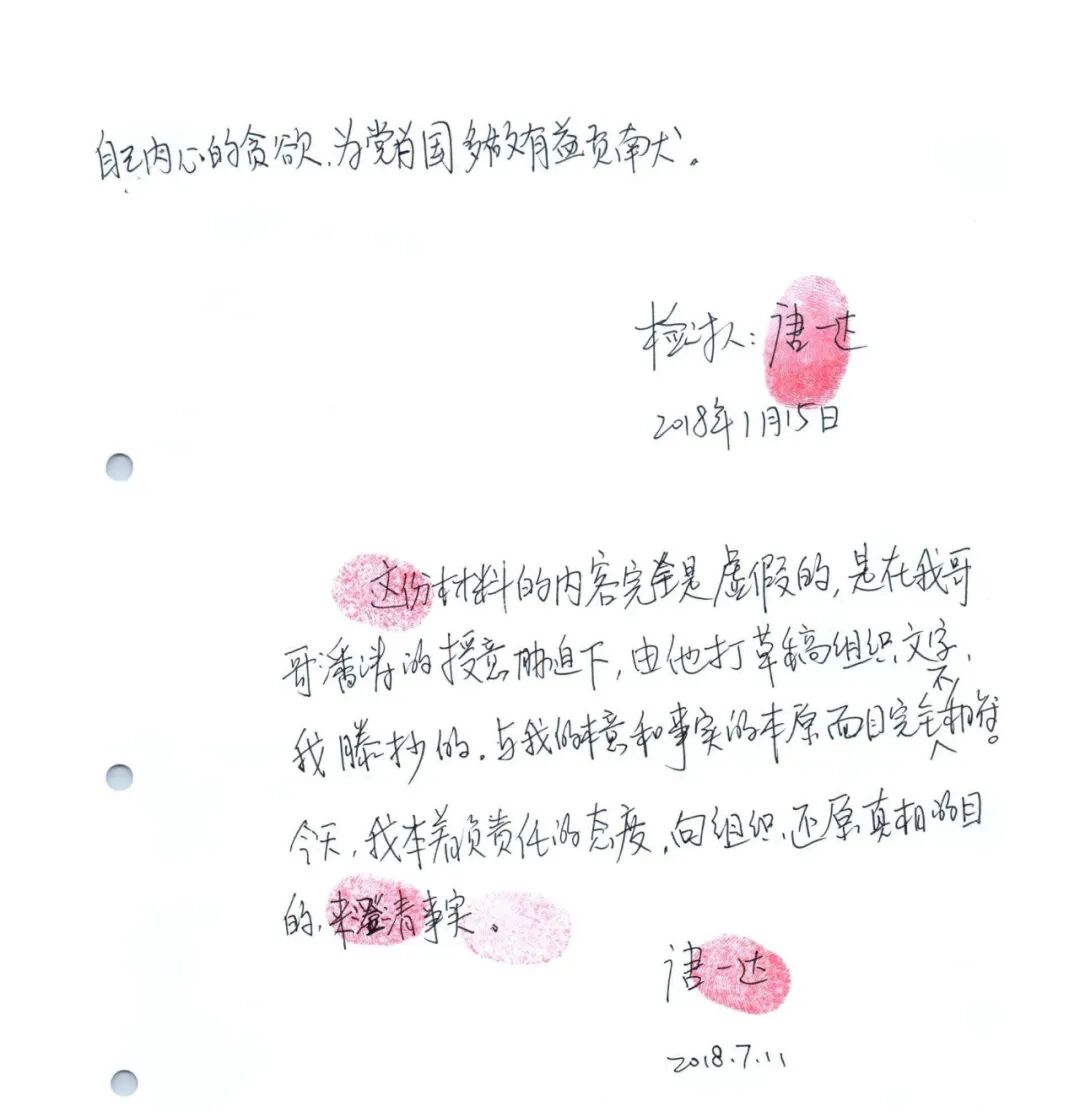 自己内心的贪欲、为党为国多做有益贡献。
检讨人：唐一达
2018年1月15日
这份材料的内容完全是虚假的，是在我哥
哥潘涛的授意胁迫下，由他打草稿组织文字，
我滕抄的。与我的本意和事实的本原面目完全不相符。
今天，我本着负责任的态度，向组织、还原真相的目
的，来澄清事实。
唐一达
2018.7.11